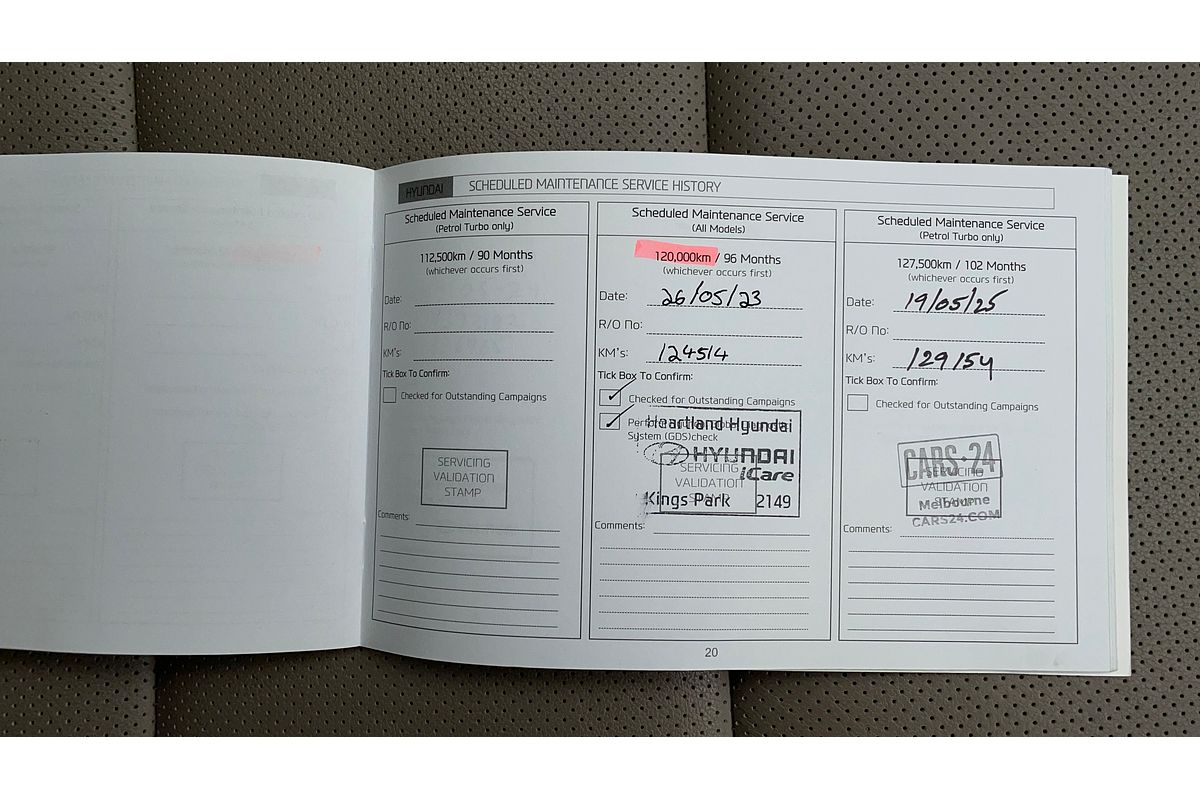 HYUNDAI SCHEDULED MAINTENANCE SERVICE HISTORY
Scheduled Maintenance Service
(Petrol Turbo only)
112,500km / 90 Months
(whichever occurs first)
Date:
R/O No:
KM's:
Tick Box To Confirm:
Checked for Outstanding Campaigns
SERVICING
VALIDATION
STAMP
Comments:
Scheduled Maintenance Service
(All Models)
120,000km / 96 Months
(whichever occurs first)
Date: 26/05/23
R/O No:
KM's: 124514
Tick Box To Confirm:
Checked for Outstanding Campaigns
System (GDS)check
Heartland Hyundai
HYUNDAI
iCare
Kings Park 2149
SERVICING
VALIDATION
Comments:
Scheduled Maintenance Service
(Petrol Turbo only)
127,500km / 102 Months
(whichever occurs first)
Date: 19/05/25
R/O No:
KM's: 129154
Tick Box To Confirm:
Checked for Outstanding Campaigns
CARS·24
SERVICING
VALIDATION
STAMP
Melbourne
CARS24.COM
Comments:
20